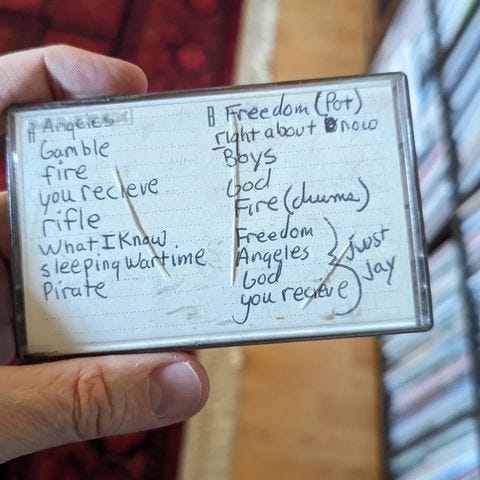 A Angeles
Gamble
fire
you recieve
rifle
What I Know
sleeping wartime
Pirate
B Freedom (Pot)
right about now
Boys
God
Fire (drums)
Freedom
Angeles
God
you recieve
just
jay